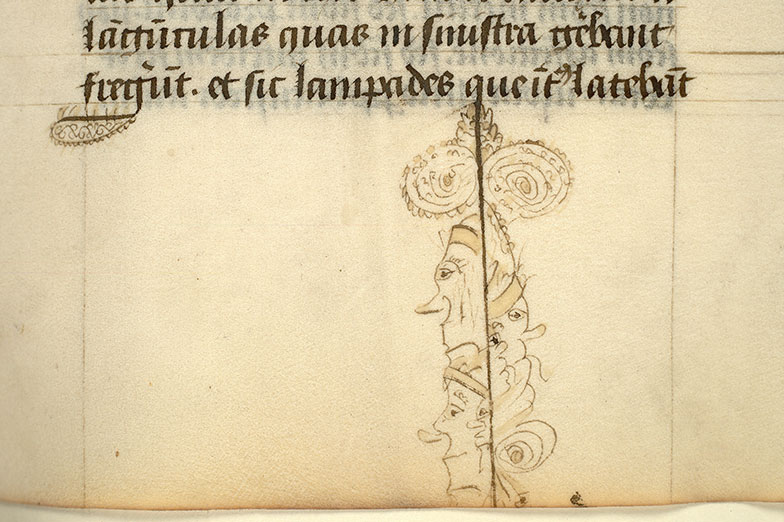 lagūculas quas in sinistra gēbant
fregūt. et sic lampades que īt latebāt